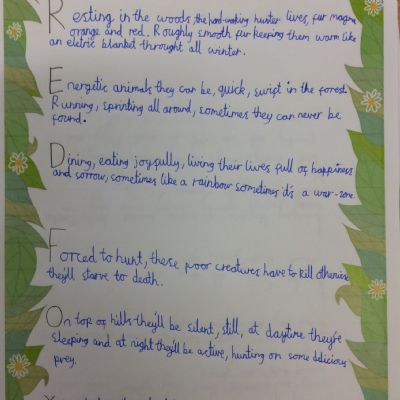 Resting in the woods, the hard-working hunter lives, fur magma
orange and red. Roughly smooth fur keeping them warm like
an eletric blanket throught all winter.
Energetic animals they can be, quick, swift in the forest
Running, sprinting all around, sometimes they can never be
found.
Dining, eating joyfully, living their lives full of happiness
and sorrow, sometimes like a rainbow sometimes it's a war-zone.
Forced to hunt, these poor creatures have to kill otherwise
they'll starve to death.
On top of hills they'll be silent, still, at daytime they're
sleeping and at night they'll be active, hunting on some delicious
prey.